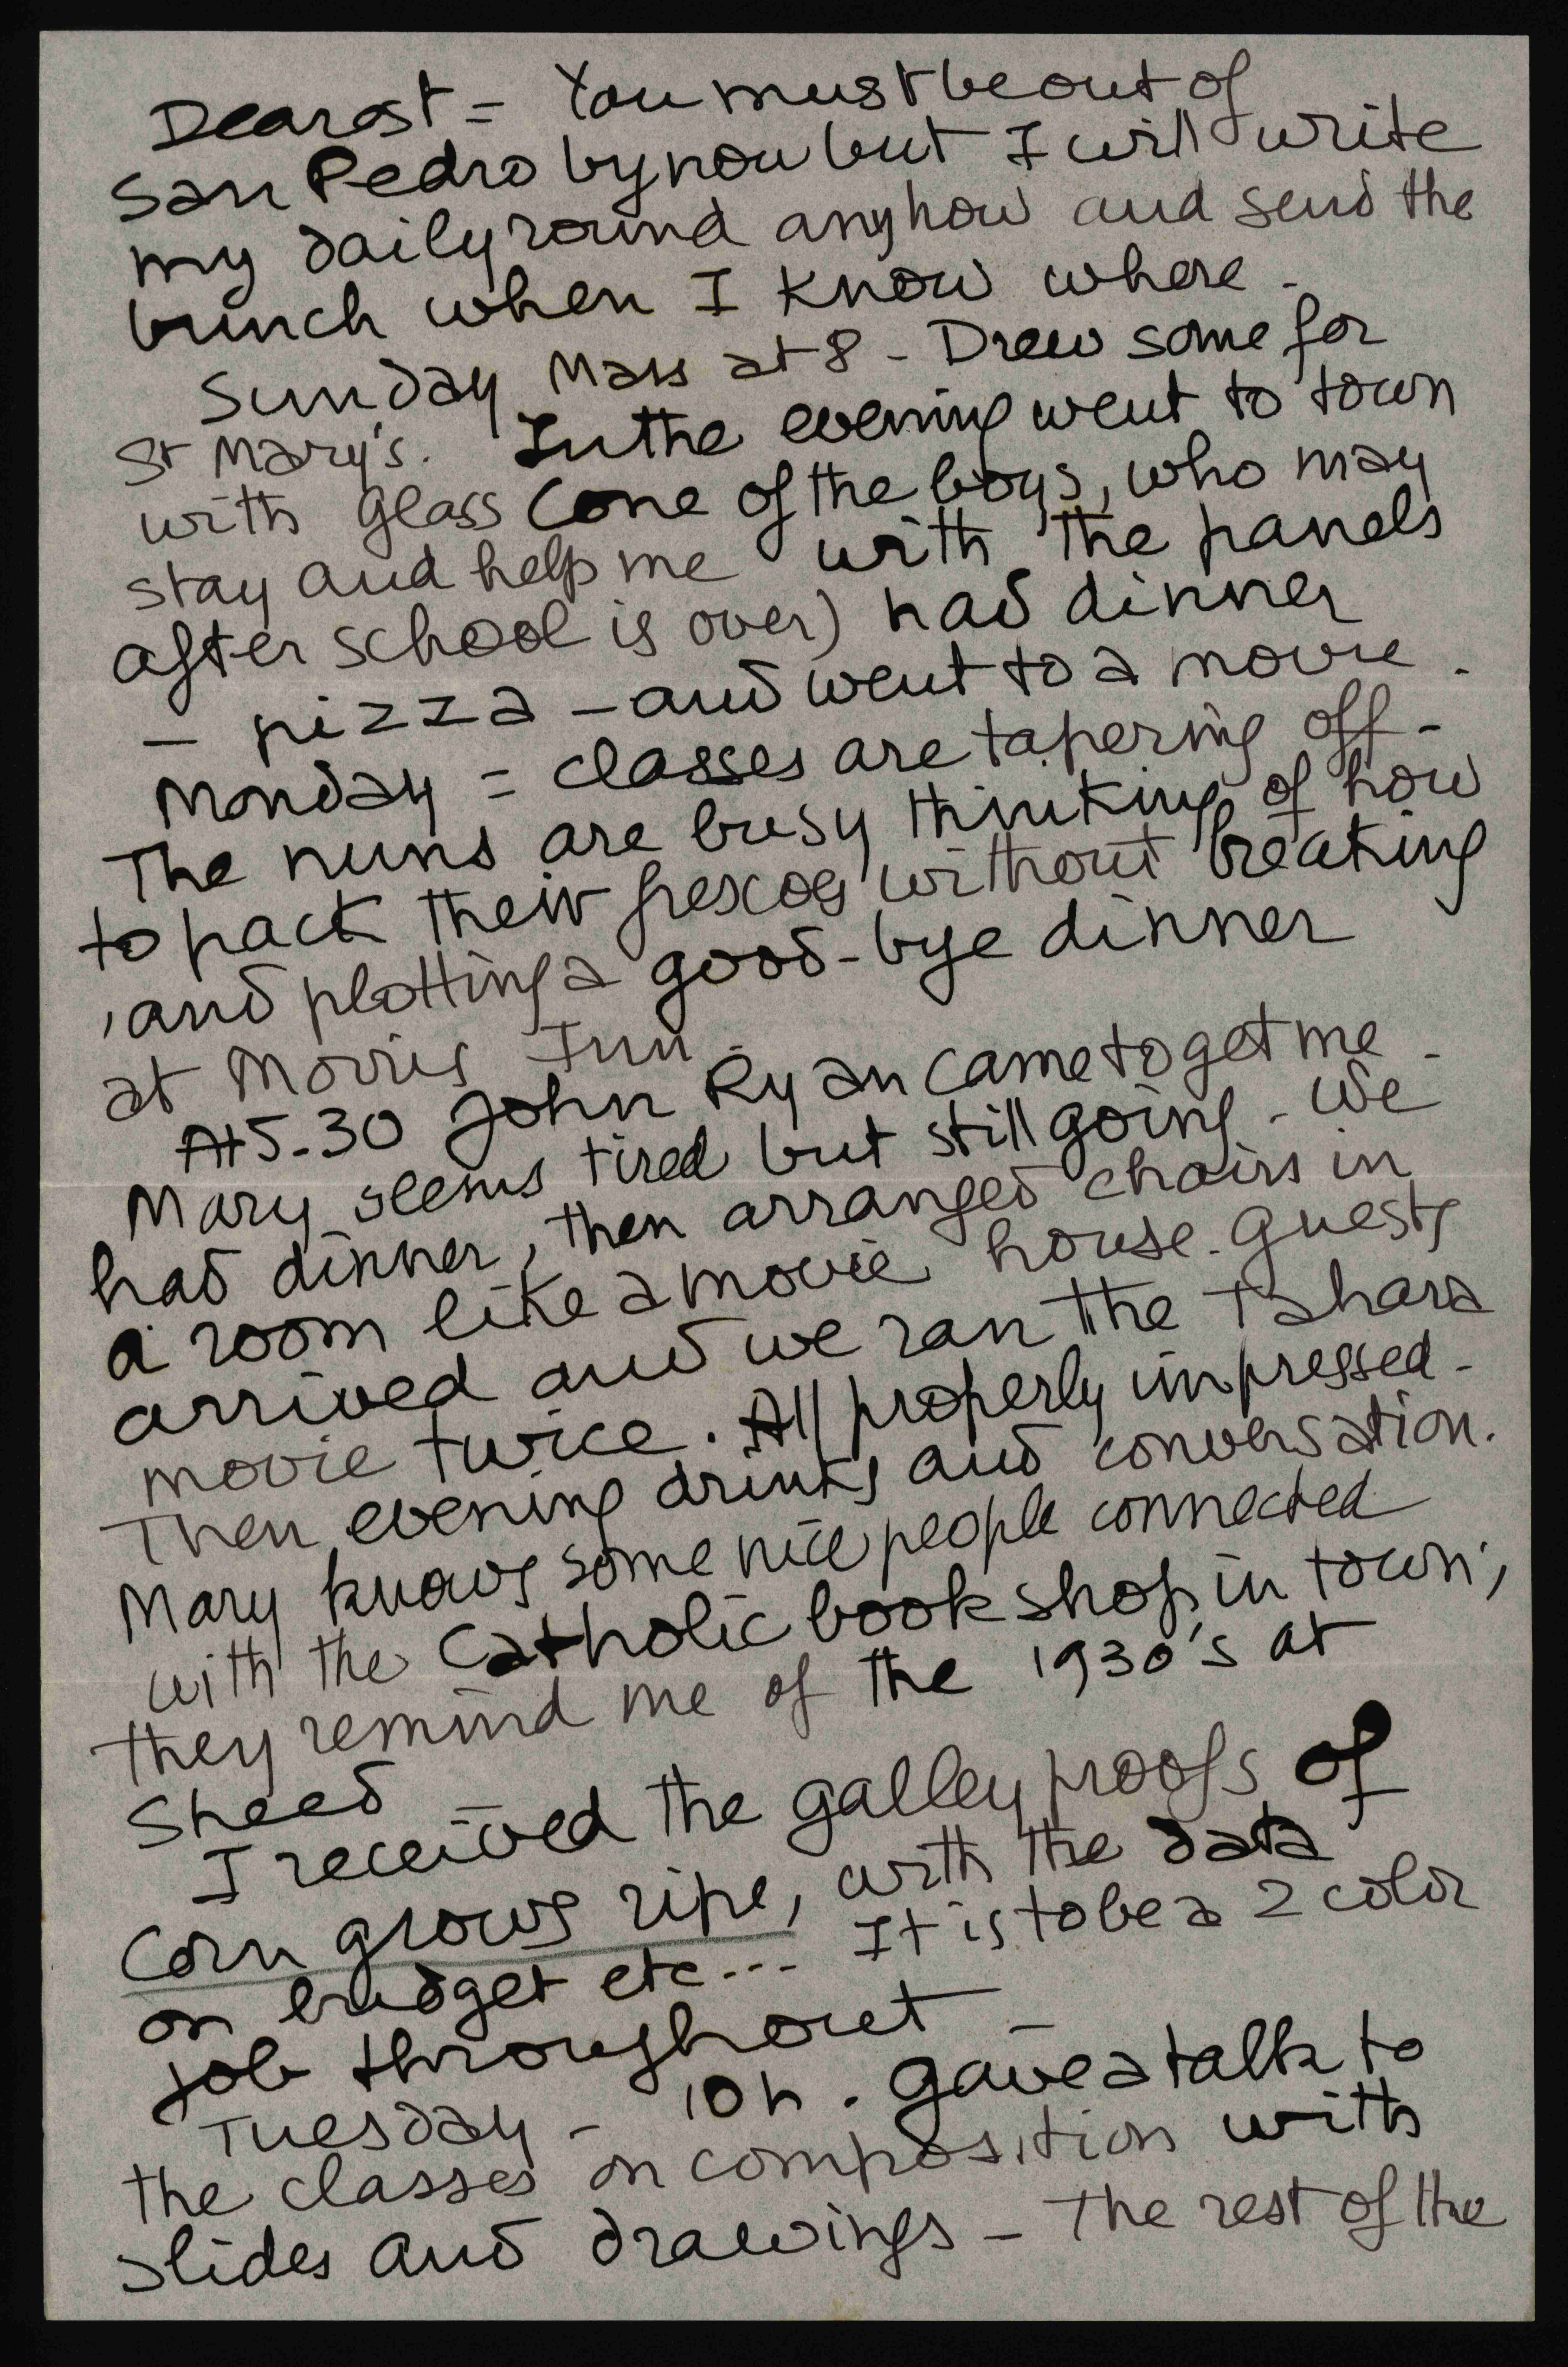 Dearest = You must be out of
San Pedro by now but I will write
my daily round anyhow and send the
bunch when I know where -
Sunday Mass at 8 - Drew some for
St Mary's. In the evening went to town
with Glass (one of the boys, who may
stay and help me with the panels
after school is over) had dinner
- pizza - and went to a movie.
Monday = classes are tapering off -
The nuns are busy thinking of how
to pack their frescoes without breaking
, and plotting a good-bye dinner
at Morris Inn.
At 5.30 John Ryan came to get me -
Mary seems tired but still going - We
had dinner, then arranged chairs in
a room like a movie house. Guests
arrived and we ran the Tahara
movie twice. All properly impressed -
Then evening drinks and conversation.
Mary knows some nice people connected
with the Catholic book shop in town,
they remind me of the 1930's at
Sheed -
I received the galley proofs of
Corn grows ripe, with the data
on budget etc... It is to be a 2 color
job throughout -
Tuesday - 10h. gave a talk to
the classes on composition with
slides and drawings - The rest of the